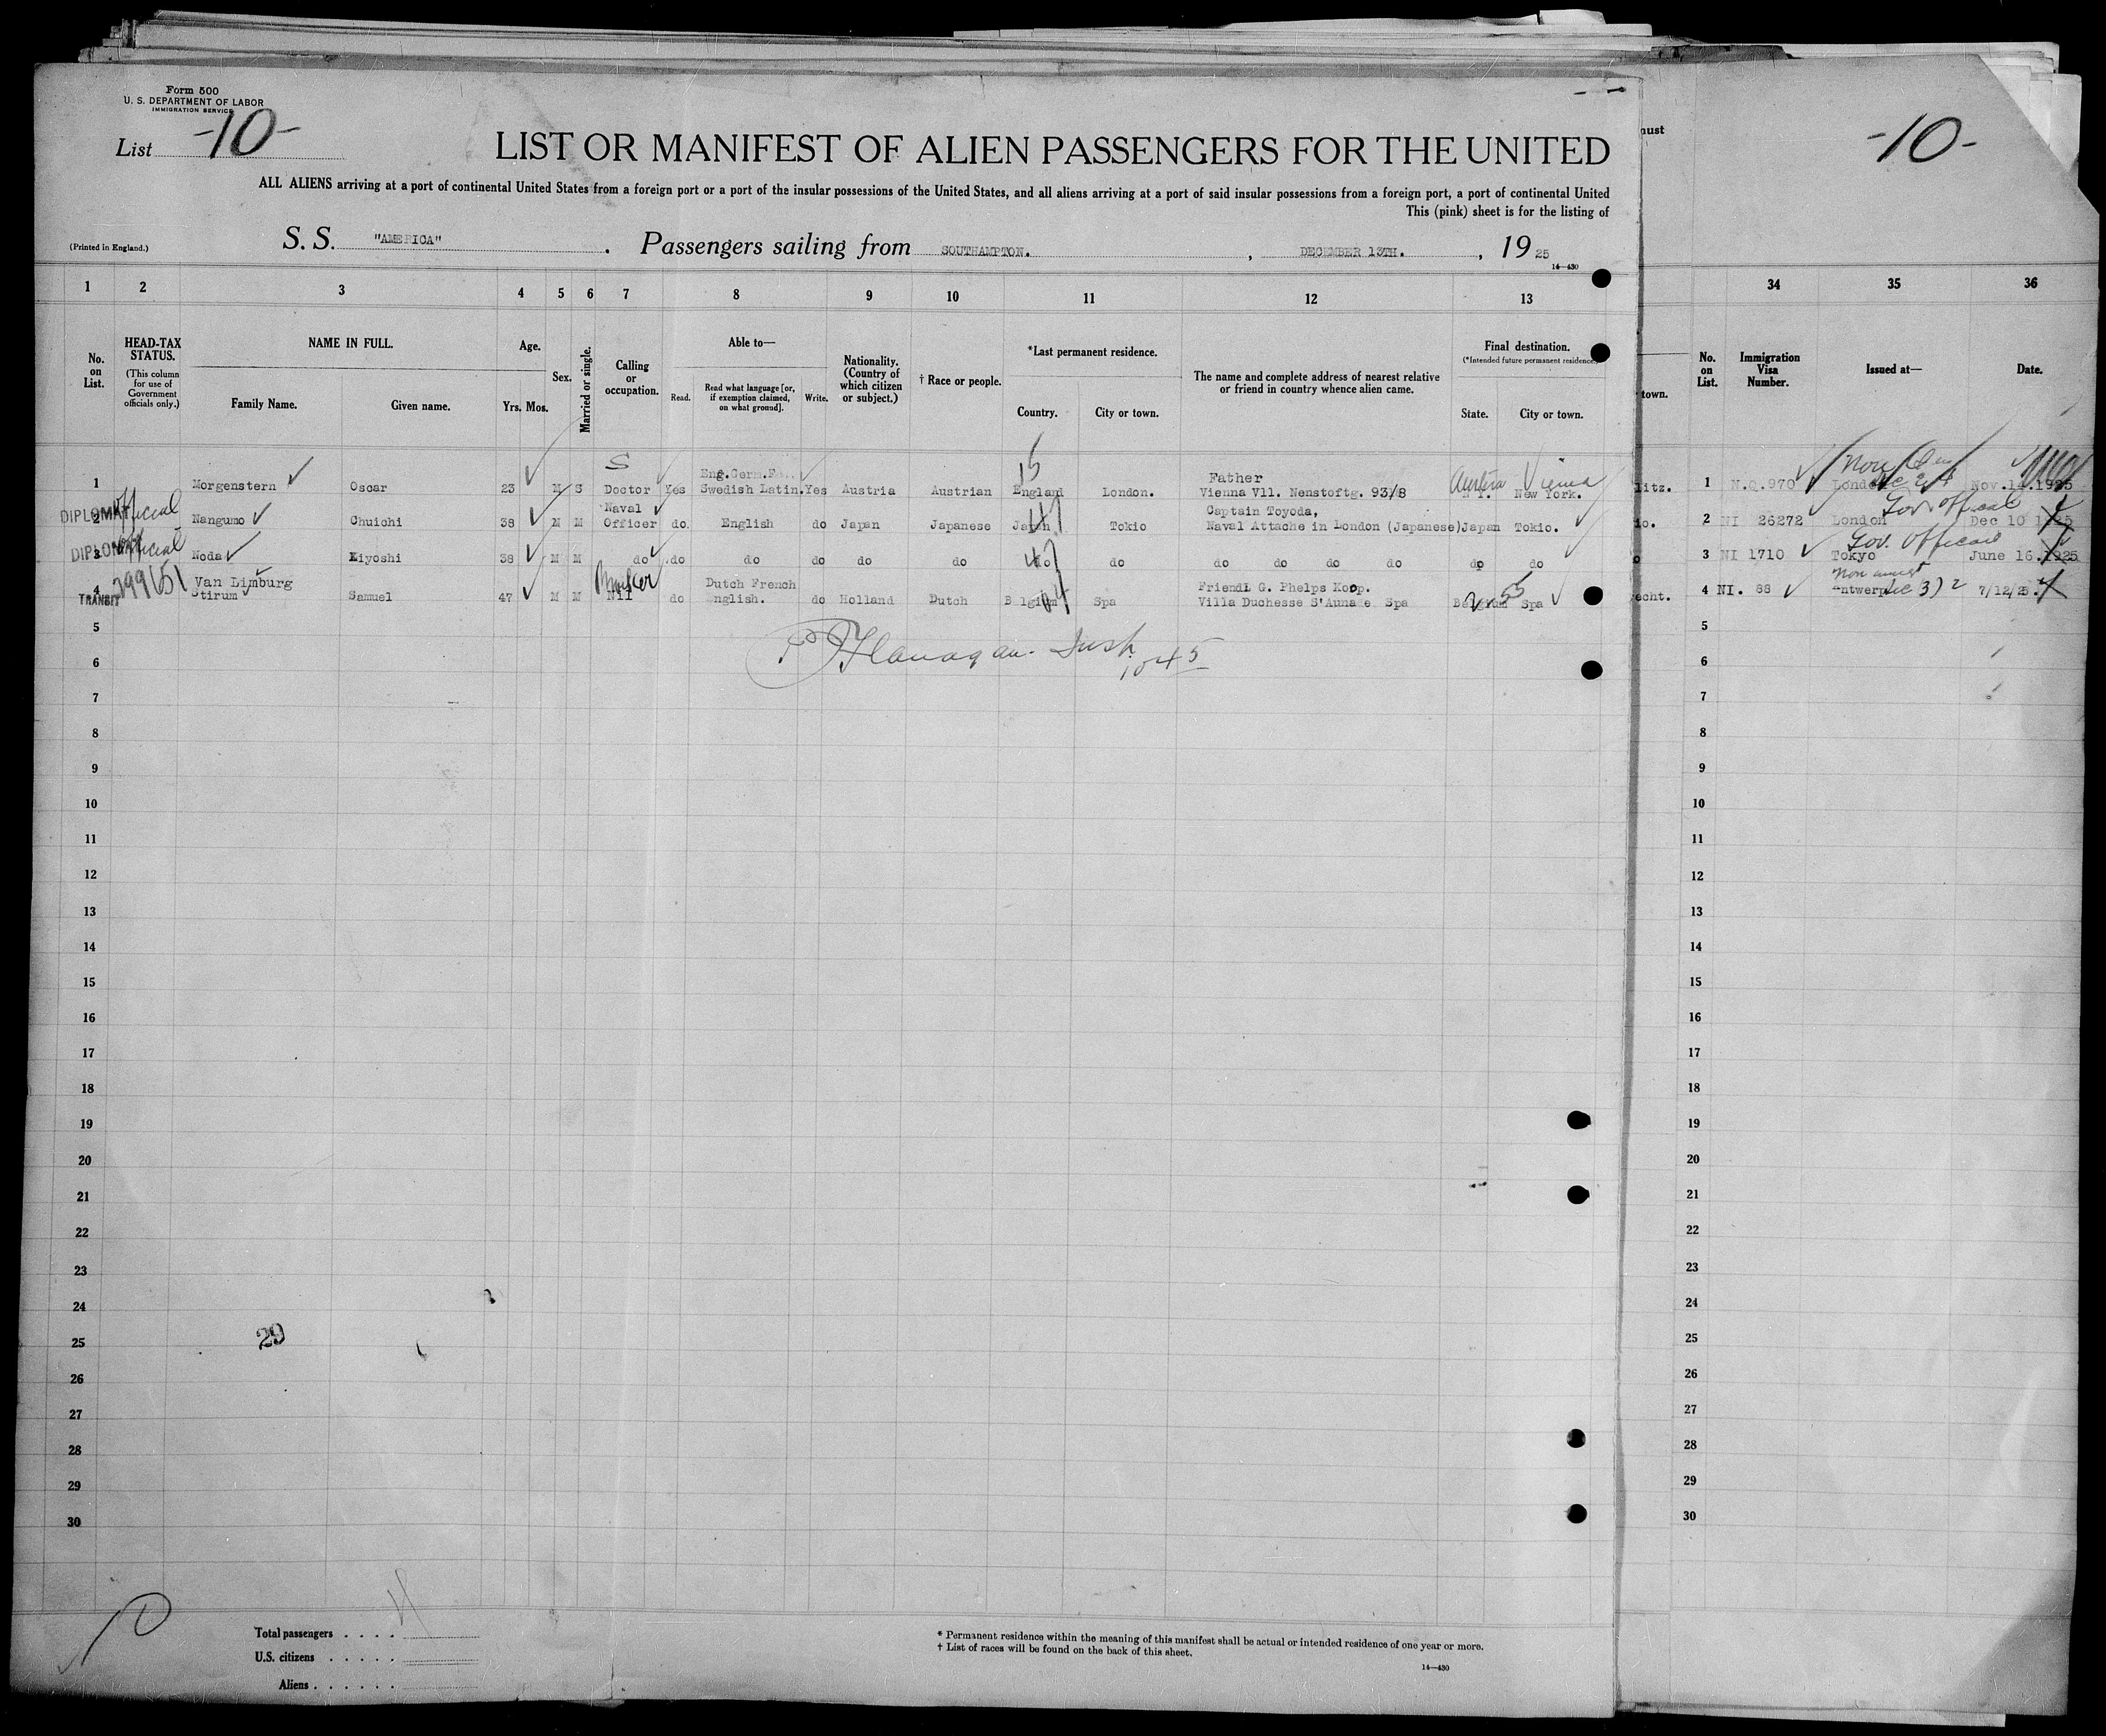 Form 500
U. S. DEPARTMENT OF LABOR
IMMIGRATION SERVICE
List -10-
LIST OR MANIFEST OF ALIEN PASSENGERS FOR THE UNITED
ALL ALIENS arriving at a port of continental United States from a foreign port or a port of the insular possessions of the United States, and all aliens arriving at a port of said insular possessions from a foreign port, a port of continental United
This (pink) sheet is for the listing of
(Printed in England.)
S. S. "AMERICA". Passengers sailing from SOUTHAMPTON. , DECEMBER 13TH. , 19 25
14—430
1 2 3 4 5 6 7 8 9 10 11 12 13
No. on List.
HEAD-TAX STATUS.
(This column for use of Government officials only.)
NAME IN FULL.
Family Name. Given name.
Age.
Yrs. Mos.
Sex.
Married or single.
Calling or occupation.
Able to—
Read. Read what language [or, if exemption claimed, on what ground]. Write.
Nationality. (Country of which citizen or subject.)
† Race or people.
*Last permanent residence.
Country. City or town.
The name and complete address of nearest relative or friend in country whence alien came.
Final destination.
(*Intended future permanent residence.)
State. City or town.
1 Morgenstern Oscar 23 M S Doctor Yes Eng.Germ. Swedish Latin. Yes Austria Austrian England London. Father Vienna Vll. Nenstoftg. 93/8 Austria Vienna New York.
S
15
DIPLOMAT official
2 Nangumo Chuichi 38 M M Naval Officer do. English do Japan Japanese Japan Tokio Captain Toyoda, Naval Attache in London (Japanese) Japan Tokio.
47
DIPLOMAT official
3 Noda Kiyoshi 38 M M do do do do do do do do do do do do do do
47
TRANSIT 299651
4 Van Limburg Stirum Samuel 47 M M Banker Nil do Dutch French English. do Holland Dutch Belgium Spa Friend G. Phelps Koop. Villa Duchesse S'Auna e Spa Belgium Spa
55
P Flanagan. Insp.
1045
5
6
7
8
9
10
11
12
13
14
15
16
17
18
19
20
21
22
23
24
25
29
26
27
28
29
30
10
Total passengers . . . .
U.S. citizens . . . . .
Aliens . . . . . .
* Permanent residence within the meaning of this manifest shall be actual or intended residence of one year or more.
† List of races will be found on the back of this sheet.
14—430
must
-10-
34 35 36
town.
No. on List.
Immigration Visa Number.
Issued at—
Date.
litz. 1 N.Q.970 London Nov.14.1925
Gov official
io. 2 NI 26272 London Dec 10 1925
Gov. Official
o 3 NI 1710 Tokyo June 16.1925
echt. 4 NI. 88 Antwerp 7/12/25.
5
6
7
8
9
10
11
12
13
14
15
16
17
18
19
20
21
22
23
24
25
26
27
28
29
30